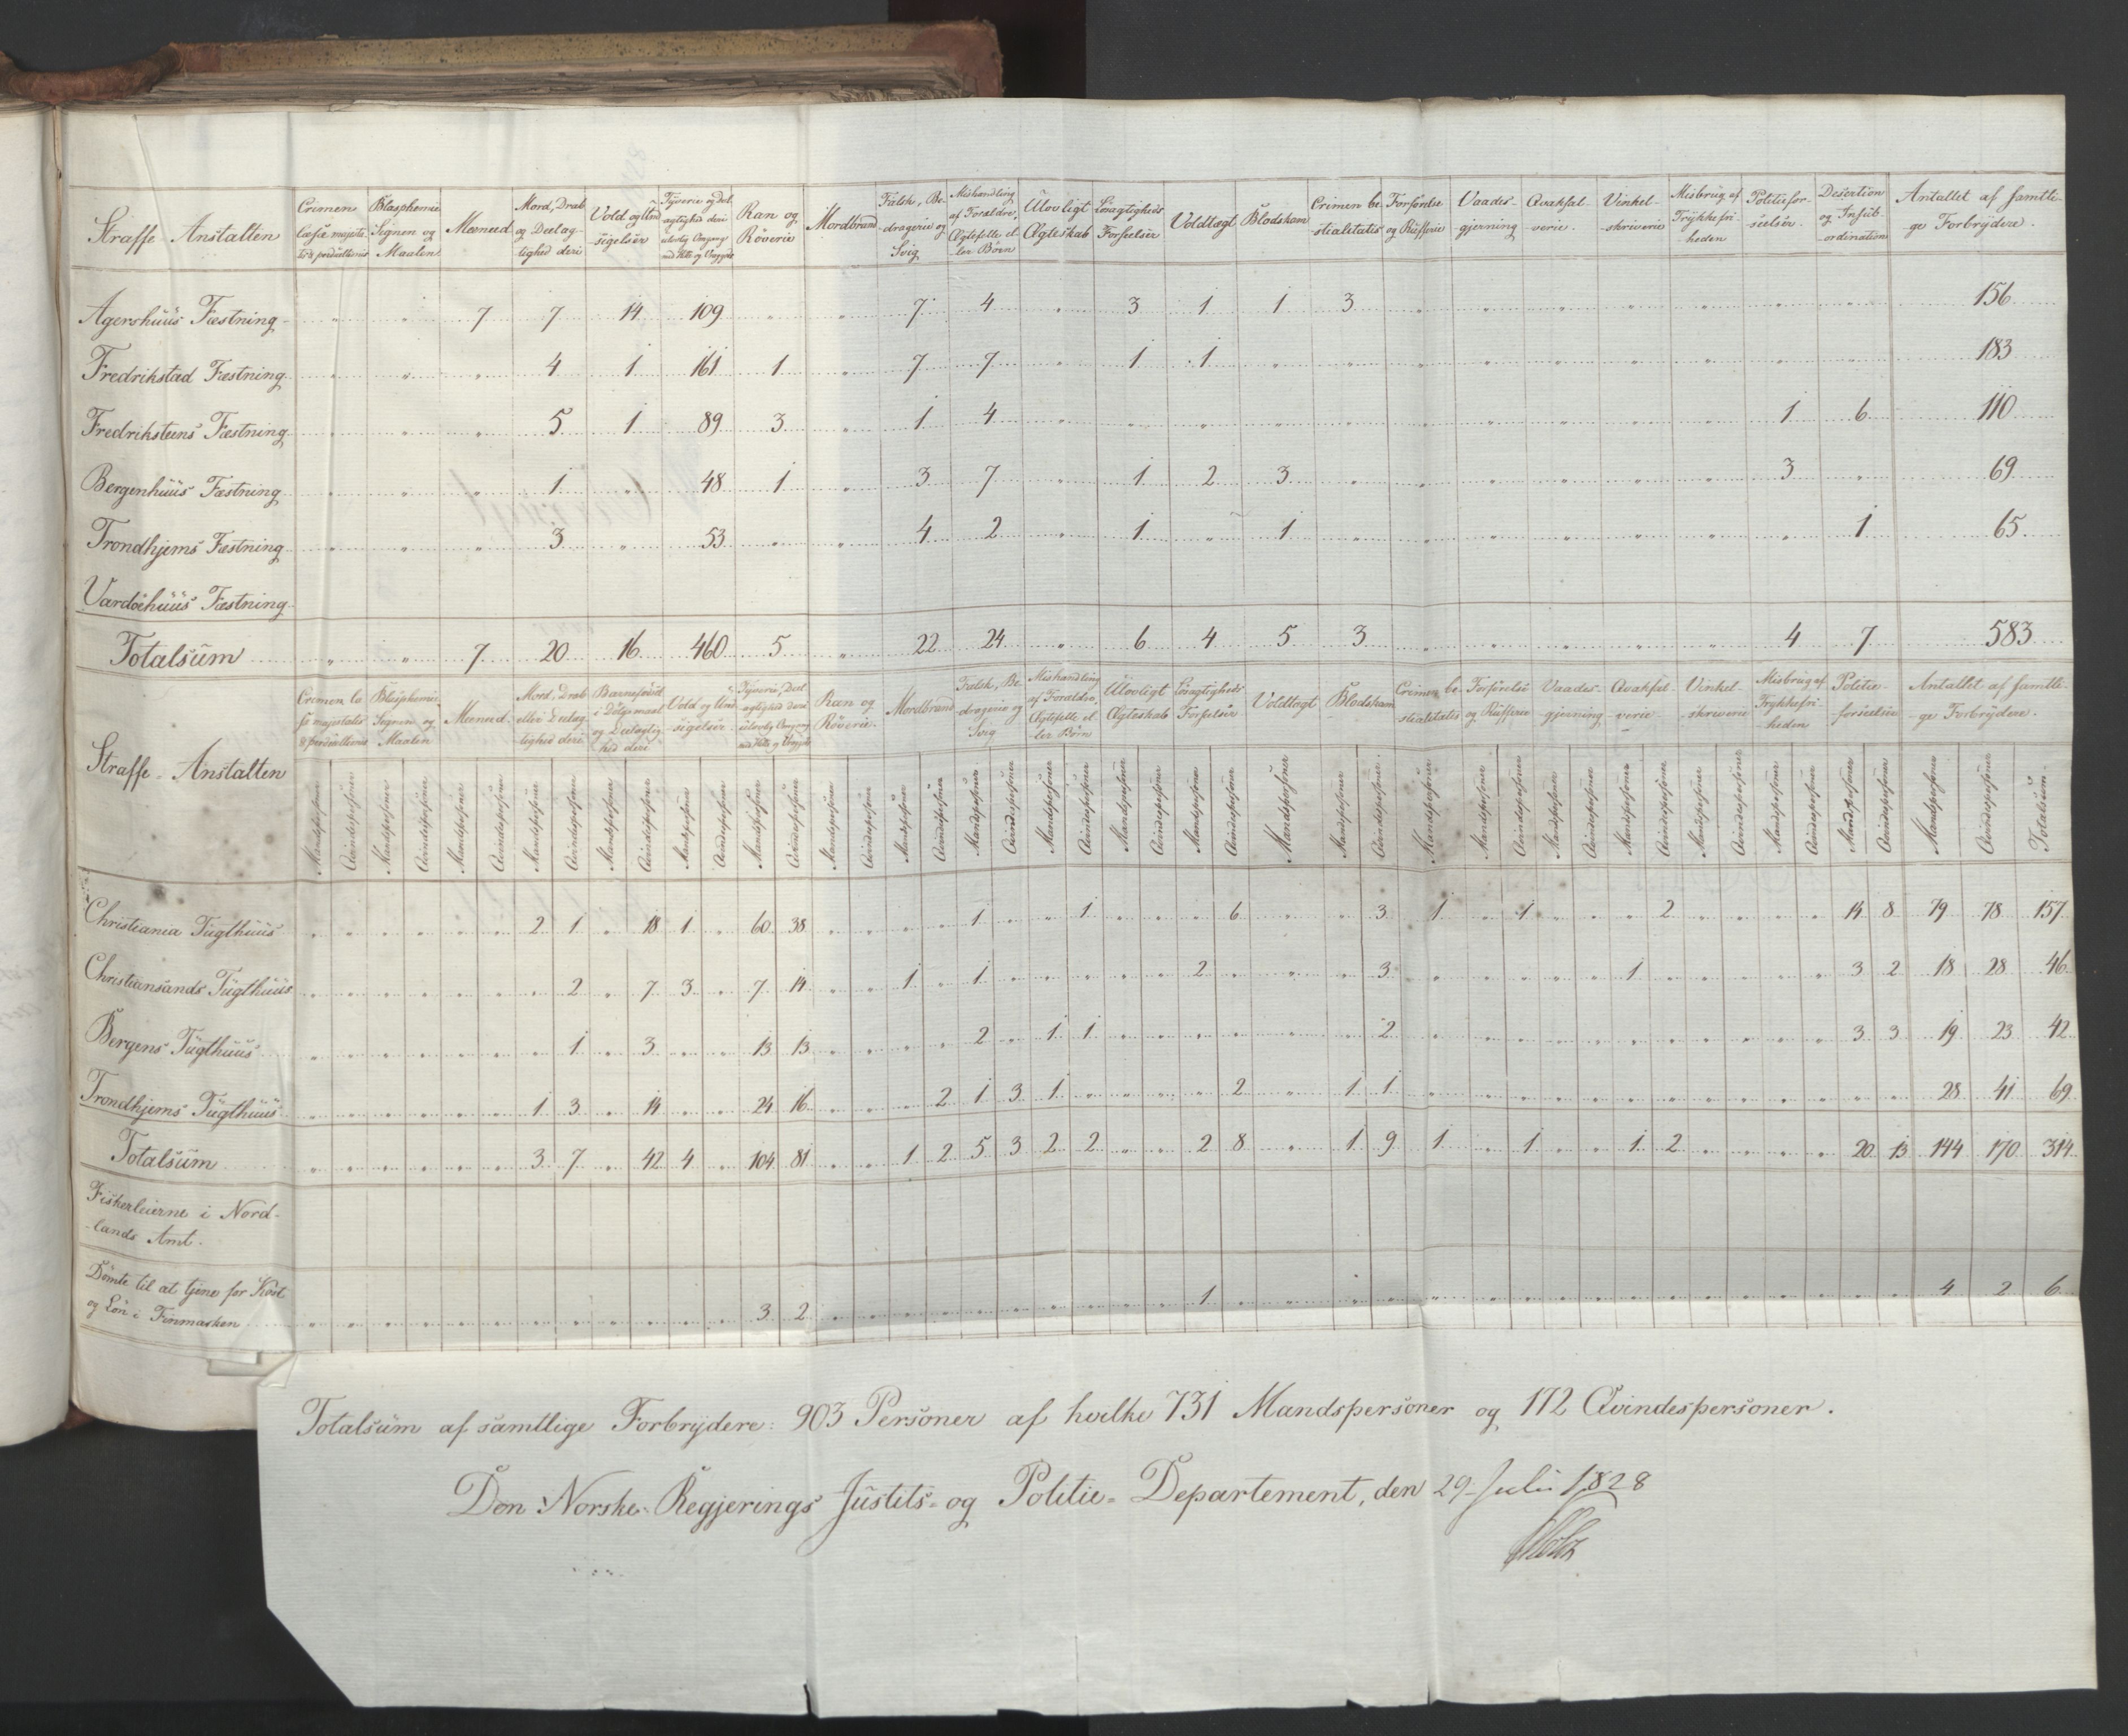 Straffe Anstalten | Crimen læsæ majestatis & perduellionis | Blasphemie Signen og Maalen | Meeneed | Mord, Drab og Deelagtighed deri | Vold og Undsigelser | Tyverie og Deelagtighed deri | Ran og Röverie | Mordbrand | Falsk, Bedragerie og Svig | Mishandling af Forældre, Ægtefælle eller Børn | Ulovligt Ægteskab | Løsagtigheds Forseelser | Voldtægt | Blodskam | Crimen bestialitatis | Forførelse og Rufferie | Vaadesgjerning | Qvaksalverie. | Vinkelskriverie | Misbrug af Trykkefriheden | Politieforseelser. | Desertion og Insubordination | Antallet af samtlige Forbrydere.
Agershuus Fæstning | " | " | 7 | 7 | 14 | 109 | " | " | 7 | 4 | " | 3 | 1 | 1 | 3 | " | " | " | " | " | " | " | 156
Fredrikstad Fæstning | " | " | " | 4 | 1 | 161 | 1 | " | 7 | 7 | " | 1 | 1 | " | " | " | " | " | " | " | " | " | 183
Fredriksteens Fæstning | " | " | " | 5 | 1 | 89 | 3 | " | 1 | 4 | " | " | " | " | " | " | " | " | " | " | 1 | 6 | 110
Bergenhuus Fæstning | " | " | " | 1 | " | 48 | 1 | " | 3 | 7 | " | 1 | 2 | 3 | " | " | " | " | " | " | 3 | " | 69
Trondhjems Fæstning | " | " | " | 3 | " | 53 | " | " | 4 | 2 | " | 1 | " | 1 | " | " | " | " | " | " | " | 1 | 65
Vardøehuus Fæstning
Totalsum | " | " | 7 | 20 | 16 | 460 | 5 | " | 22 | 24 | " | 6 | 4 | 5 | 3 | " | " | " | " | " | 4 | 7 | 583
Straffe-Anstalten | Crimen læsæ majestatis & perduellionis | Blasphemie, Signen og Maalen | Meeneed | Mord, Drab eller Deelagtighed deri | Barnefødsel i Dølgsmaal og Deelagtighed deri | Vold og Undsigelser | Tyverie, Deelagtighed deri | Ran og Röverie. | Mordbrand | Falsk, Bedragerie og Svig | Mishandling af Forældre, Ægtefælle eller Børn | Ulovligt Ægteskab | Løsagtigheds Forseelser | Voldtægt | Blodskam | Crimen bestialitatis | Forførelse og Rufferie | Vaadesgjerning | Qvaksalverie | Vinkelskriverie | Misbrug af Trykkefriheden | Politieforseelser | Antallet af samtlige Forbrydere.
Mandspersoner | Qvindespersoner | Mandspersoner | Qvindespersoner | Mandspersoner | Qvindespersoner | Mandspersoner | Qvindespersoner | Mandspersoner | Qvindespersoner | Mandspersoner | Qvindespersoner | Mandspersoner | Qvindespersoner | Mandspersoner | Qvindespersoner | Mandspersoner | Qvindespersoner | Mandspersoner | Qvindespersoner | Mandspersoner | Qvindespersoner | Mandspersoner | Qvindespersoner | Mandspersoner | Qvindespersoner | Mandspersoner | Mandspersoner | Qvindespersoner | Mandspersoner | Mandspersoner | Qvindespersoner | Mandspersoner | Qvindespersoner | Mandspersoner | Qvindespersoner | Mandspersoner | Qvindespersoner | Mandspersoner | Qvindespersoner | Mandspersoner | Qvindespersoner | Mandspersoner | Qvindespersoner | Totalsum
Christiania Tugthuus | 2 | 1 | " | 18 | 1 | " | 60 | 38 | 1 | 1 | 6 | 3 | 1 | 1 | 2 | 14 | 8 | 79 | 78 | 157
Christiansands Tugthuus | 2 | " | 7 | 3 | " | 7 | 14 | 1 | 1 | 2 | 3 | 1 | 3 | 2 | 18 | 28 | 46
Bergens Tugthuus | 1 | " | 3 | " | " | 13 | 13 | 2 | " | 1 | 1 | 2 | 3 | 3 | 19 | 23 | 42
Trondhjems Tugthuus | 1 | 3 | " | 14 | " | " | 24 | 16 | 2 | 1 | 3 | 1 | 2 | 1 | 1 | 28 | 41 | 69
Totalsum | 3 | 7 | " | 42 | 4 | " | 104 | 81 | " | " | 1 | 2 | 5 | 3 | 2 | 2 | " | " | 2 | 8 | " | 1 | 9 | 1 | " | 1 | " | " | 1 | 2 | " | " | " | " | 20 | 13 | 144 | 170 | 314
Fiskerleierne i Nord-
-lands Amt.
Dömte til at tjene for Kost
og Løn i Finmarken | 3 | 2 | 1 | 4 | 2 | 6
Totalsum af samtlige Forbrydere: 903 Personer af hvilke 731 Mandspersoner og 172 Qvindespersoner.
Den Norske Regjerings Justits- og Politie-Departement, den 29 Juli 1828